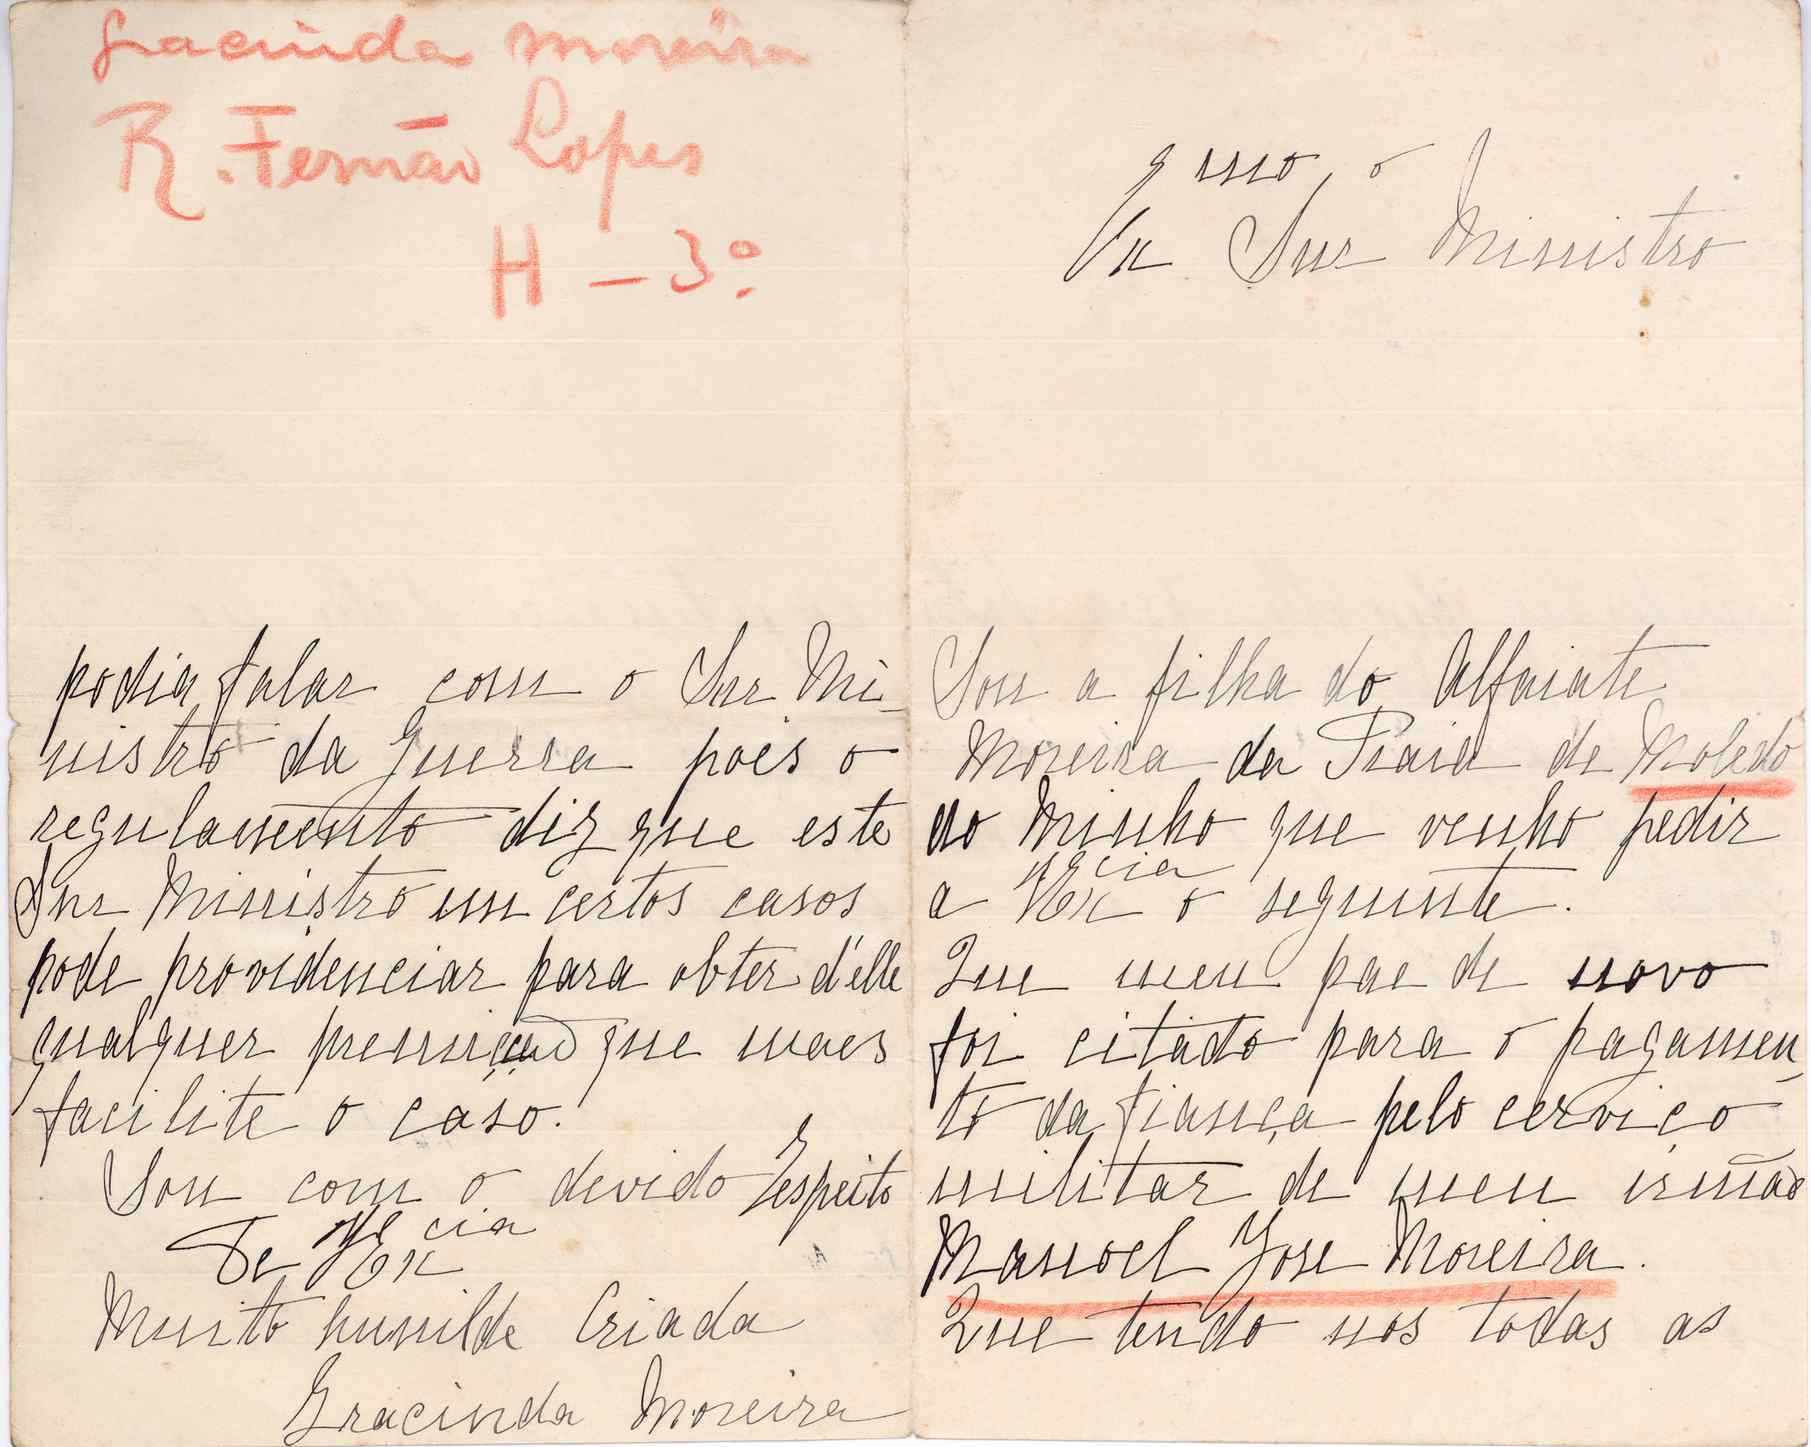 Gracinda Moreira
R. Fernão Lopes
H – 3º
podia falar com o Snr Mi-
nistro da Guerra poes o
regulamento diz que este
Snr Ministro em certos casos
pode providenciar para obter d'elle
qualquer que maes
facilite o caso.
Sou com o devido Respeito
De VExcia
Muito humilde Criada
Gracinda Moreira
Exmo Snr Ministro
Sou a filha do Alfaiate
Moreira da Praia de Moledo
do Minho que venho pedir
a VExcia o seguinte.
Que meu pae de novo
foi citado para o pagamen-
to da fiança pelo cerviço
militar de meu irmão
Manoel Jose Moreira.
Que tendo nos todas as